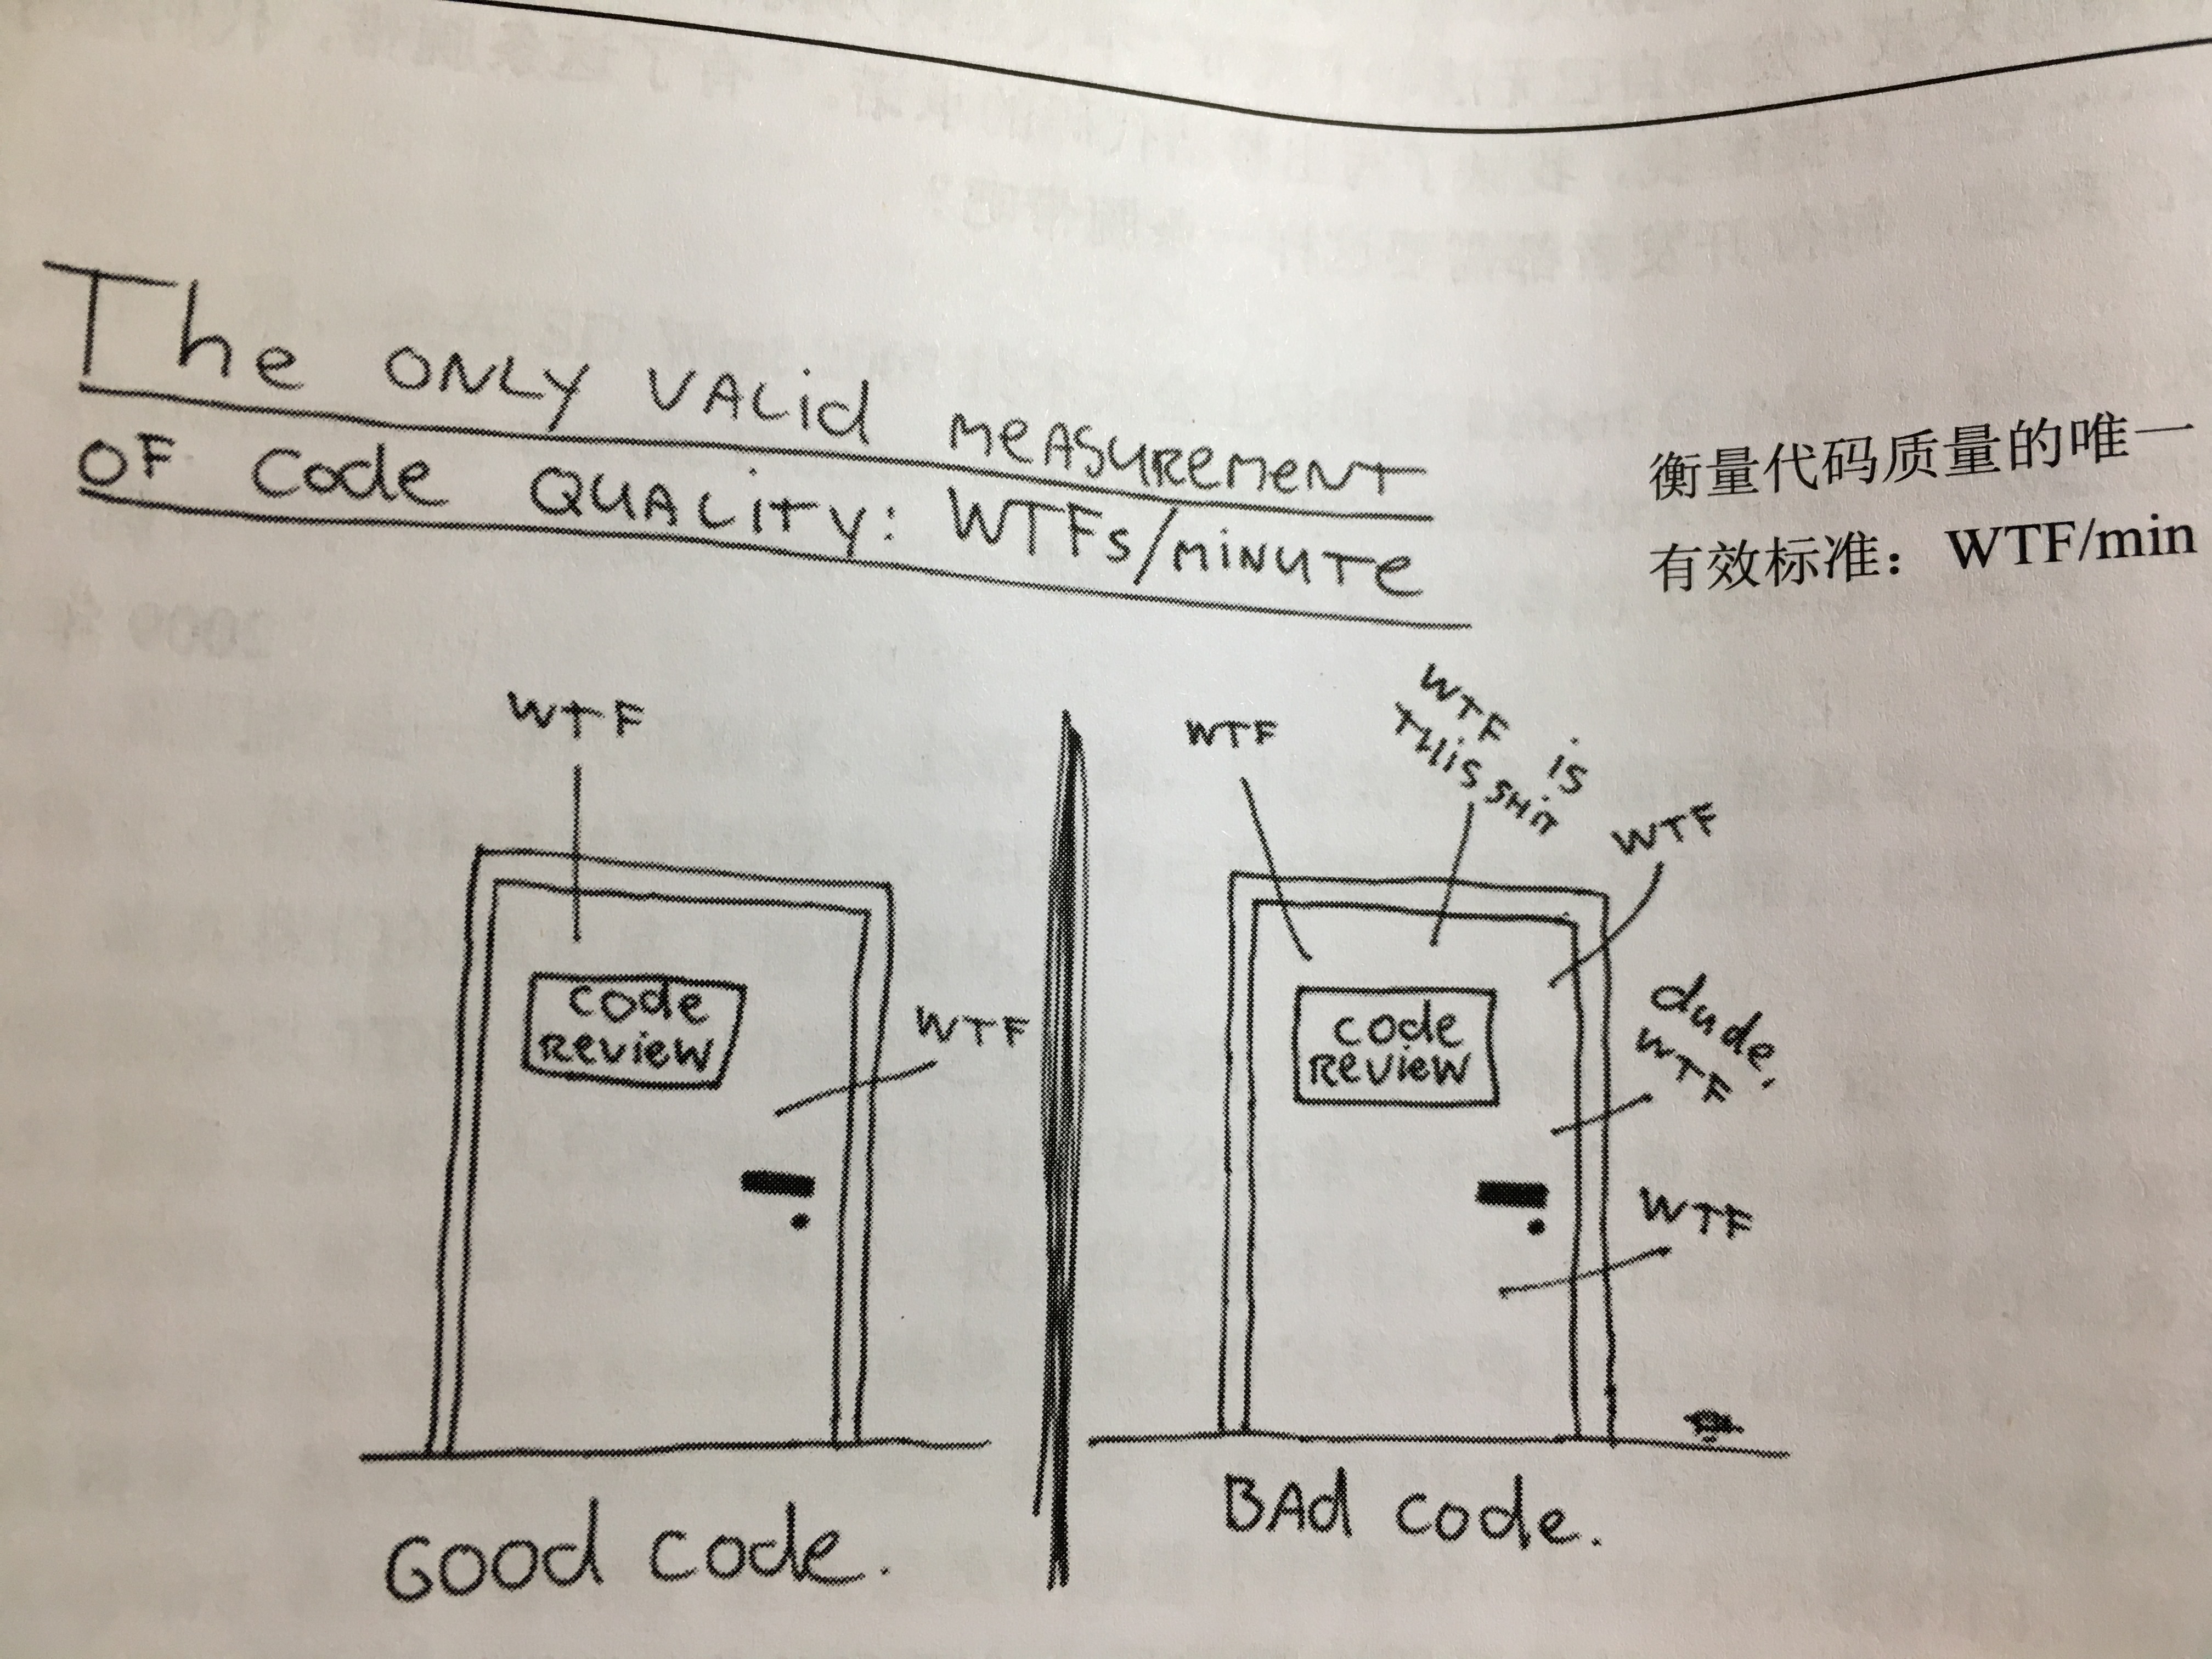 The ONLY VALid MEASUREMENT
OF Code QUALITY: WTFs/MINUTE
衡量代码质量的唯一
有效标准：WTF/min
WTF
code
REVIEW
WTF
Good code.
WTF
WTF is
THIS SHIT
WTF
code
REVIEW
dude.
WTF
WTF
BAd code.